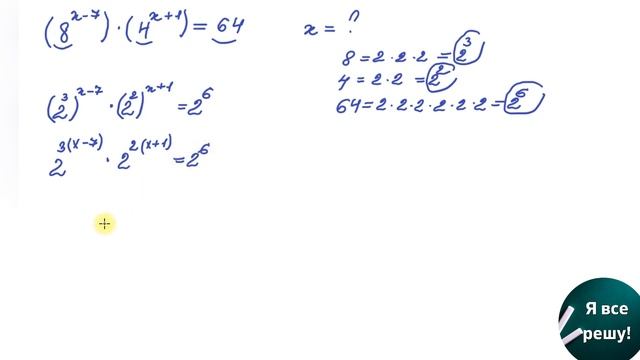 (8^{x-7}) · (4^{x+1}) = 64
x = ?
8 = 2 · 2 · 2 = 2^3
4 = 2 · 2 = 2^2
64 = 2 · 2 · 2 · 2 · 2 · 2 = 2^6
(2^3)^{x-7} · (2^2)^{x+1} = 2^6
2^{3(x-7)} · 2^{2(x+1)} = 2^6
Я все
решу!